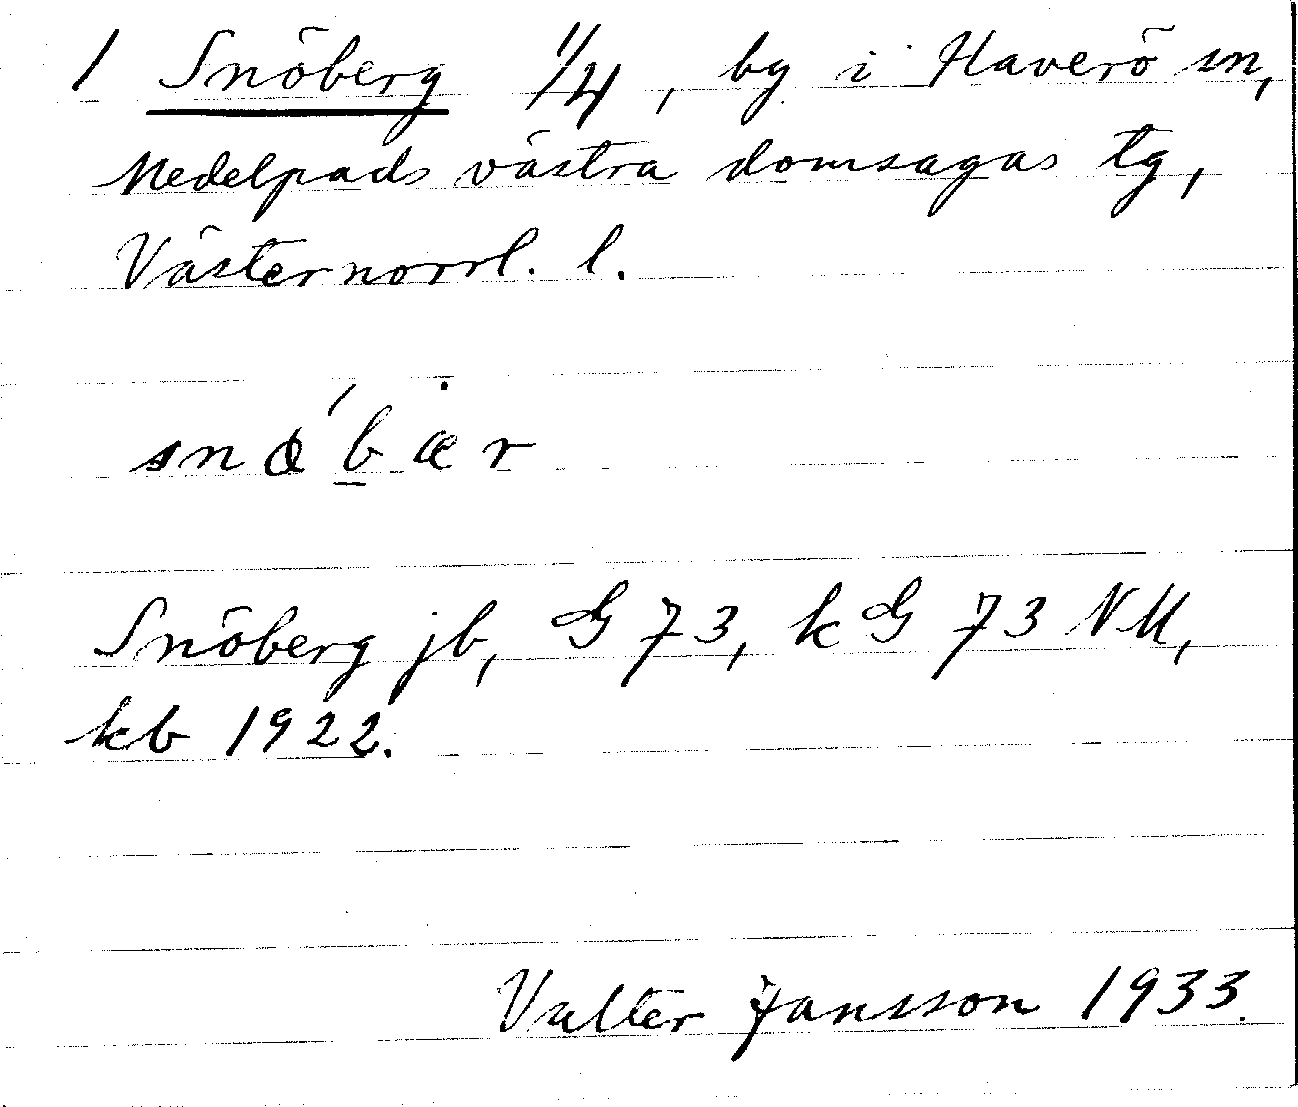 1 Snöberg 1/4, by i Haverö sn,
Medelpads västra domsagas tg,
Västernorrl. l.
snö́bær
Snöberg jb, G 73, kG 73 NM,
kb 1922.
Valter Jansson 1933.